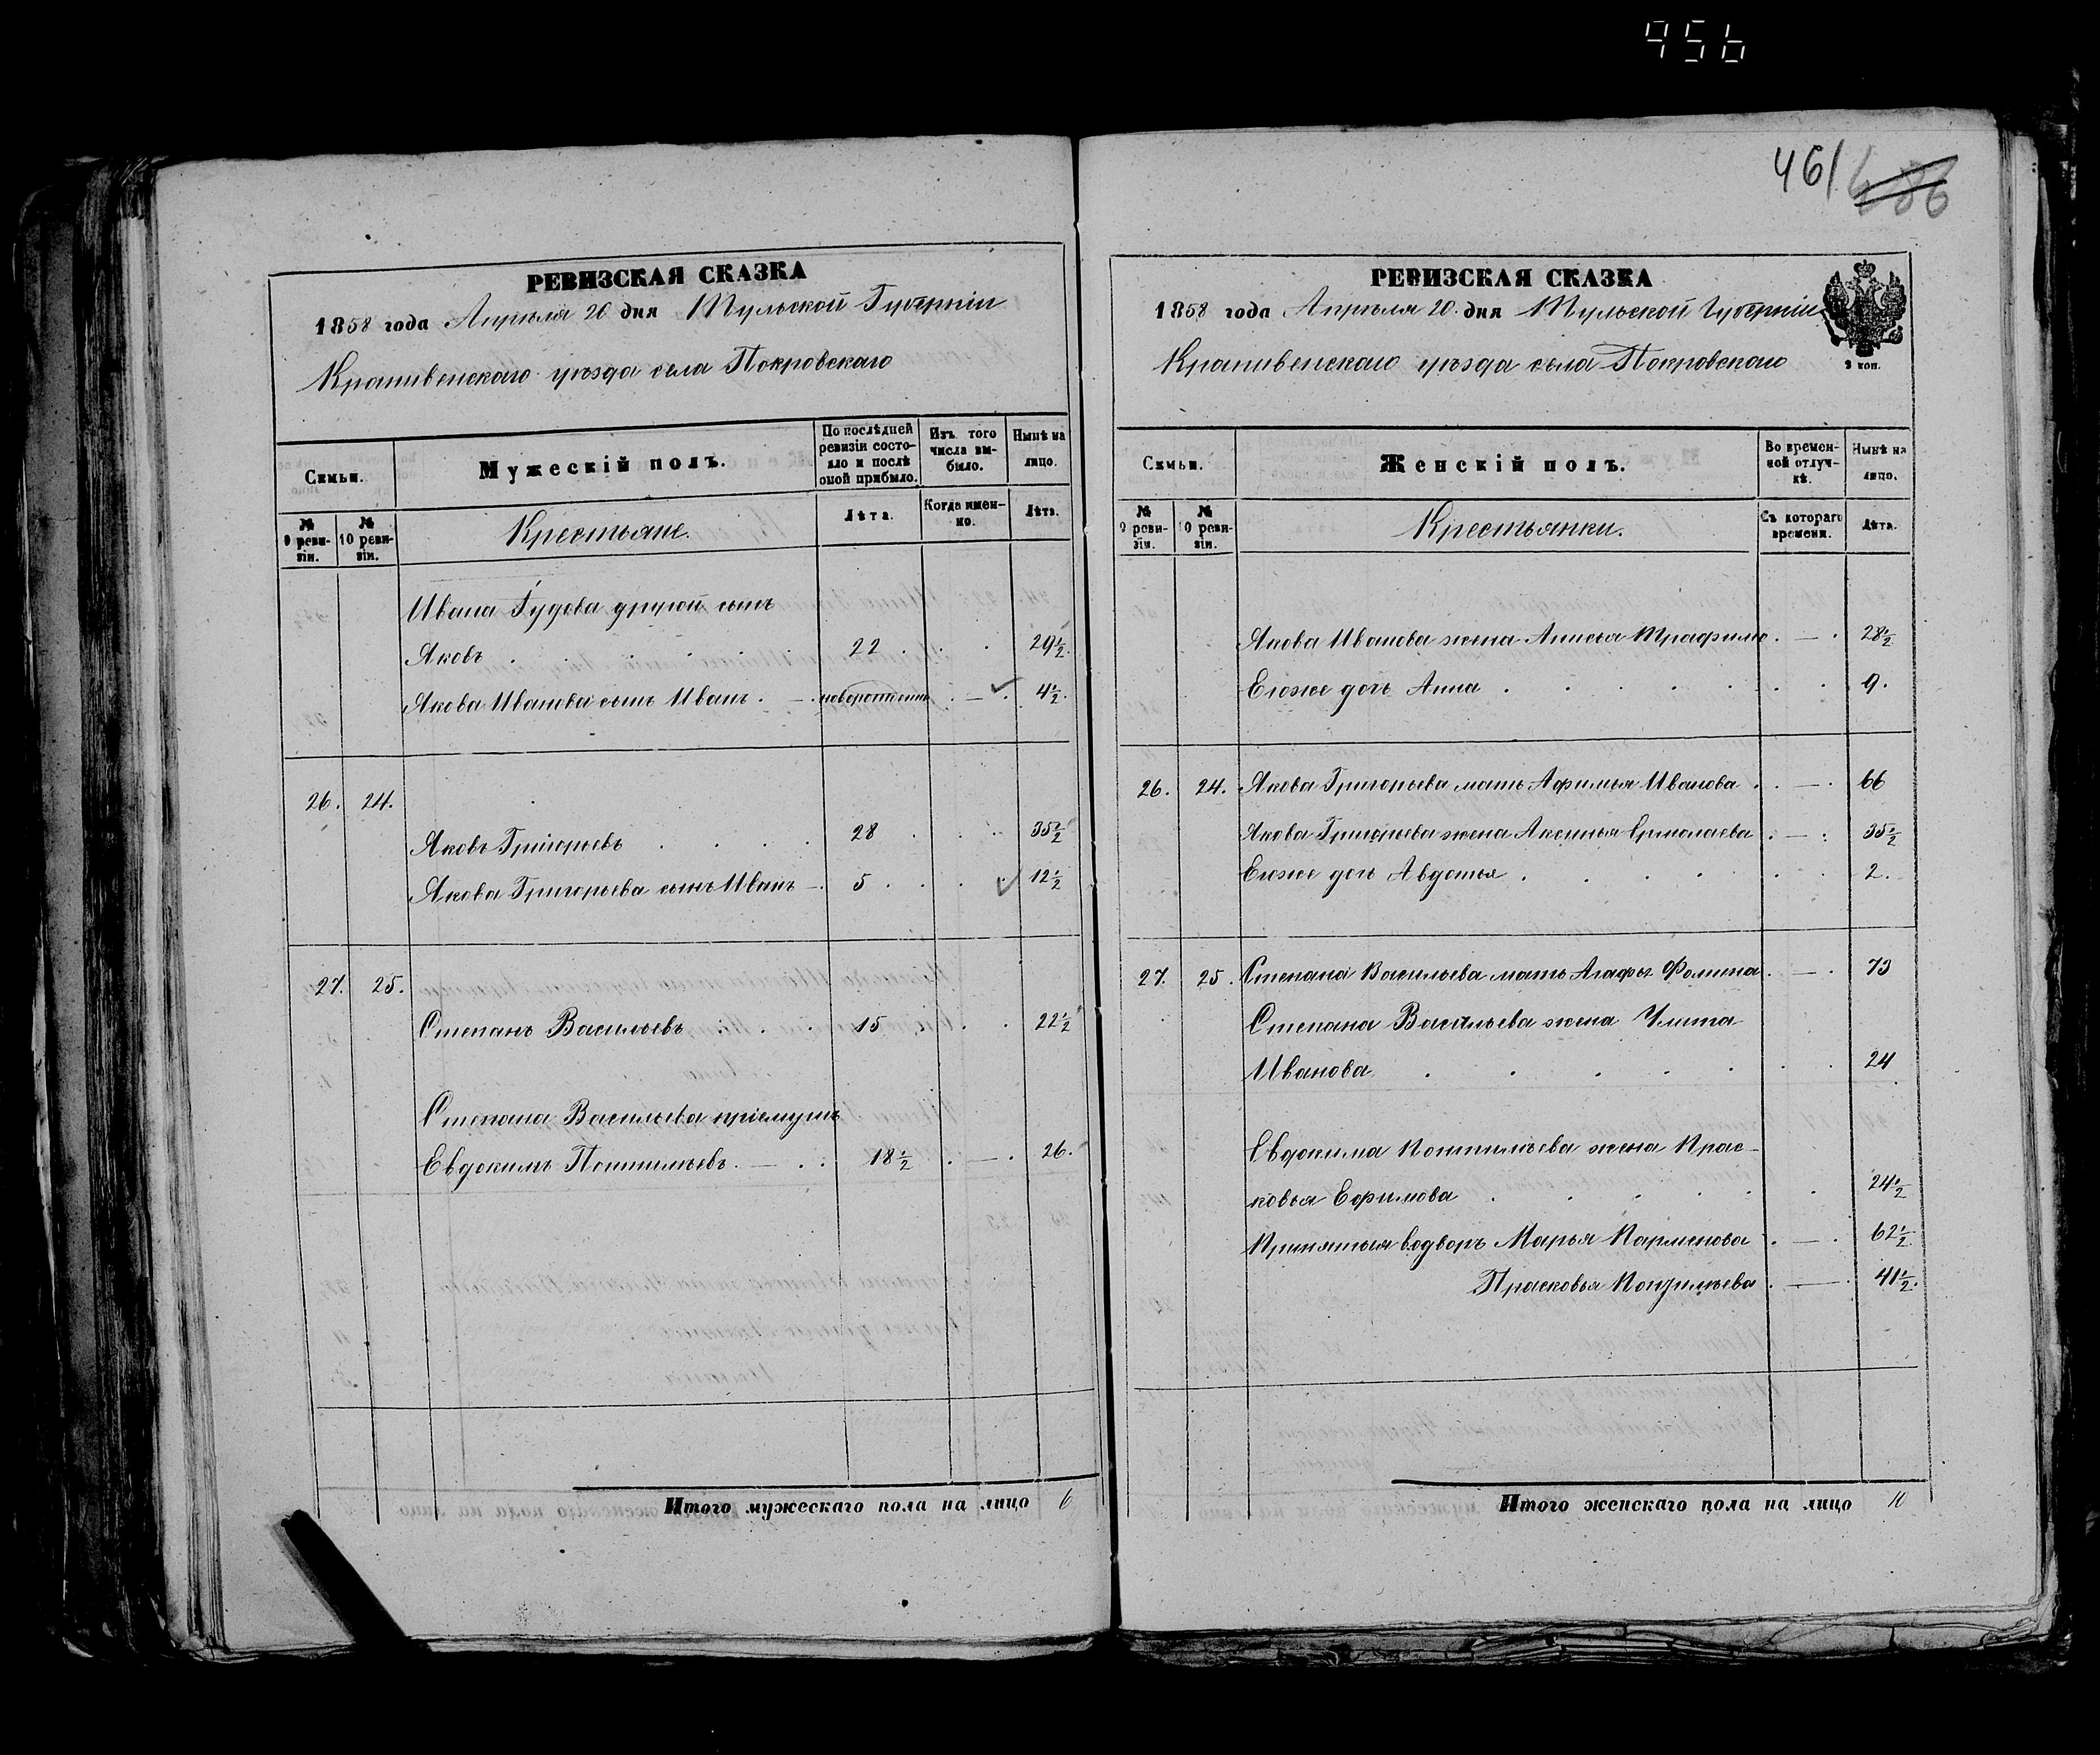 956
461
486
РЕВИЗСКАЯ СКАЗКА
1858 года Апрѣля 20 дня Тульской Губерніи
Крапивенскаго уѣзда села Покровскаго
Семьи.
Мужескій полъ.
По послѣдней ревизіи состояло и послѣ оной прибыло.
Изъ того числа выбыло.
Нынѣ на лицо.
№ 9 ревизіи.
№ 10 ревизіи.
Крестьяне.
Лѣта.
Когда именно.
Лѣта.
Ивана Гудова другой сынъ
Яковъ . . . . . . 22 . . . 29½.
Якова Иванова сынъ Иванъ . — . новорожденъ . — . 4½.
26. 24.
Яковъ Григорьевъ . . . . 28 . . . 35½
Якова Григорьева сынъ Иванъ — . 5 . . . . 12½
27. 25.
Степанъ Васильевъ . . . . 15 . . . 22½
Степана Васильева пріемышъ
Евдокимъ Понтильевъ. — . . 18½ . — . 26.
Итого мужескаго пола на лицо 6
РЕВИЗСКАЯ СКАЗКА
1858 года Апрѣля 20. дня Тульской Губерніи
Крапивенскаго уѣзда села Покровскаго
2 коп.
Семьи.
Женскій полъ.
Во временной отлучкѣ.
Нынѣ на лицо.
№ 9 ревизіи.
№ 10 ревизіи.
Крестьянки.
Съ котораго времени.
Лѣта.
Якова Иванова жена Анисья Трафимо . — . 28½
Егоже дочь Анна . . . . . . . 9.
26. 24. Якова Григорьева мать Афимья Иванова . . — . 66
Якова Григорьева жена Аксинья Ермолаева . — . 35½
Егоже дочь Авдотья . . . . . . 2.
27. 25. Степана Васильева мать Агафья Фомина . — . 73
Степана Васильева жена Улита
Иванова . . . . . . . 24
Евдокима Понтильева жена Прас-
ковья Ефимова . . . . . . 24½
Принятыя водворъ Марья Парменова . — . 62½.
Прасковья Понтильева . — . 41½.
Итого женскаго пола на лицо 10